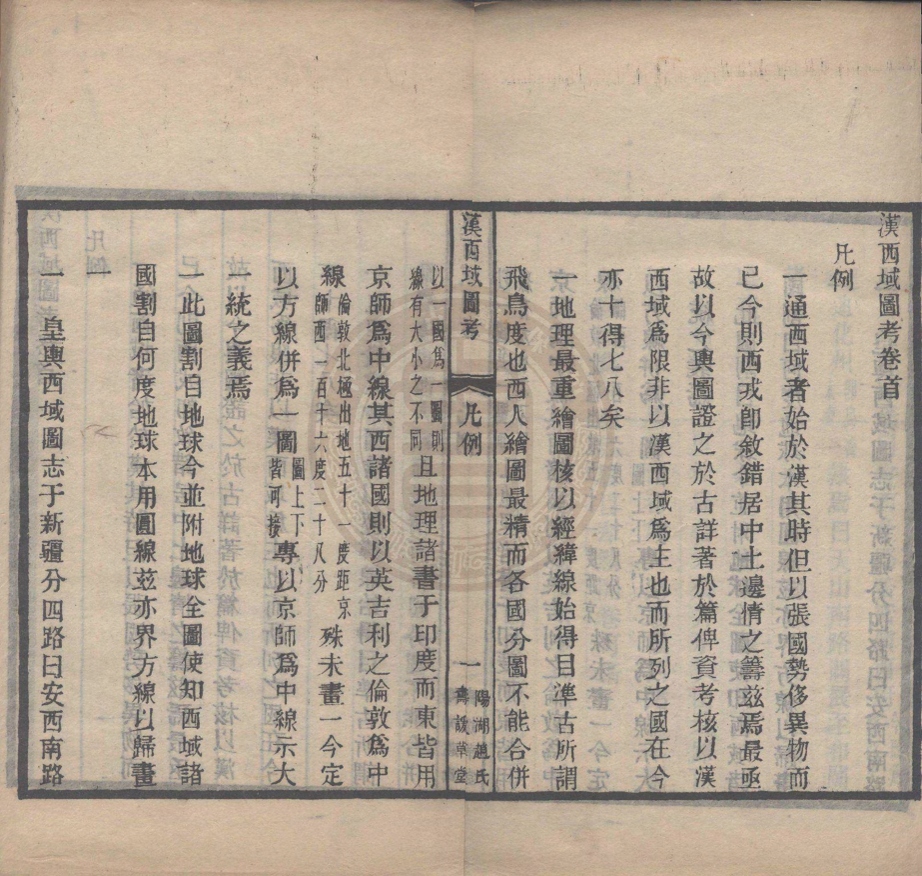 漢西域圖考卷首
凡例
一通西域者始於漢其時但以張國勢侈異物而
已今則西戎卽敘錯居中土邊情之籌茲焉最亟
故以今輿圖證之於古詳著於篇俾資考核以漢
西域爲限非以漢西域爲主也而所列之國在今
亦十得七八矣
一地理最重繪圖核以經緯線始得目準古所謂
飛鳥度也西人繪圖最精而各國分圖不能合併
漢西域圖考 凡例 一 陽湖趙氏壽諼草堂
以一國爲一圖則線有大小之不同且地理諸書于印度而東皆用
京師爲中線其西諸國則以英吉利之倫敦爲中
線倫敦北極出地五十一度距京師西一百十六度二十八分殊未畫一今定
以方線併爲一圖圖上下皆可接專以京師爲中線示大
一統之義焉
一此圖割自地球今並附地球全圖使知西域諸
國割自何度地球本用圓線茲亦界方線以歸畫
一
一皇輿西域圖志于新疆分四路曰安西南路